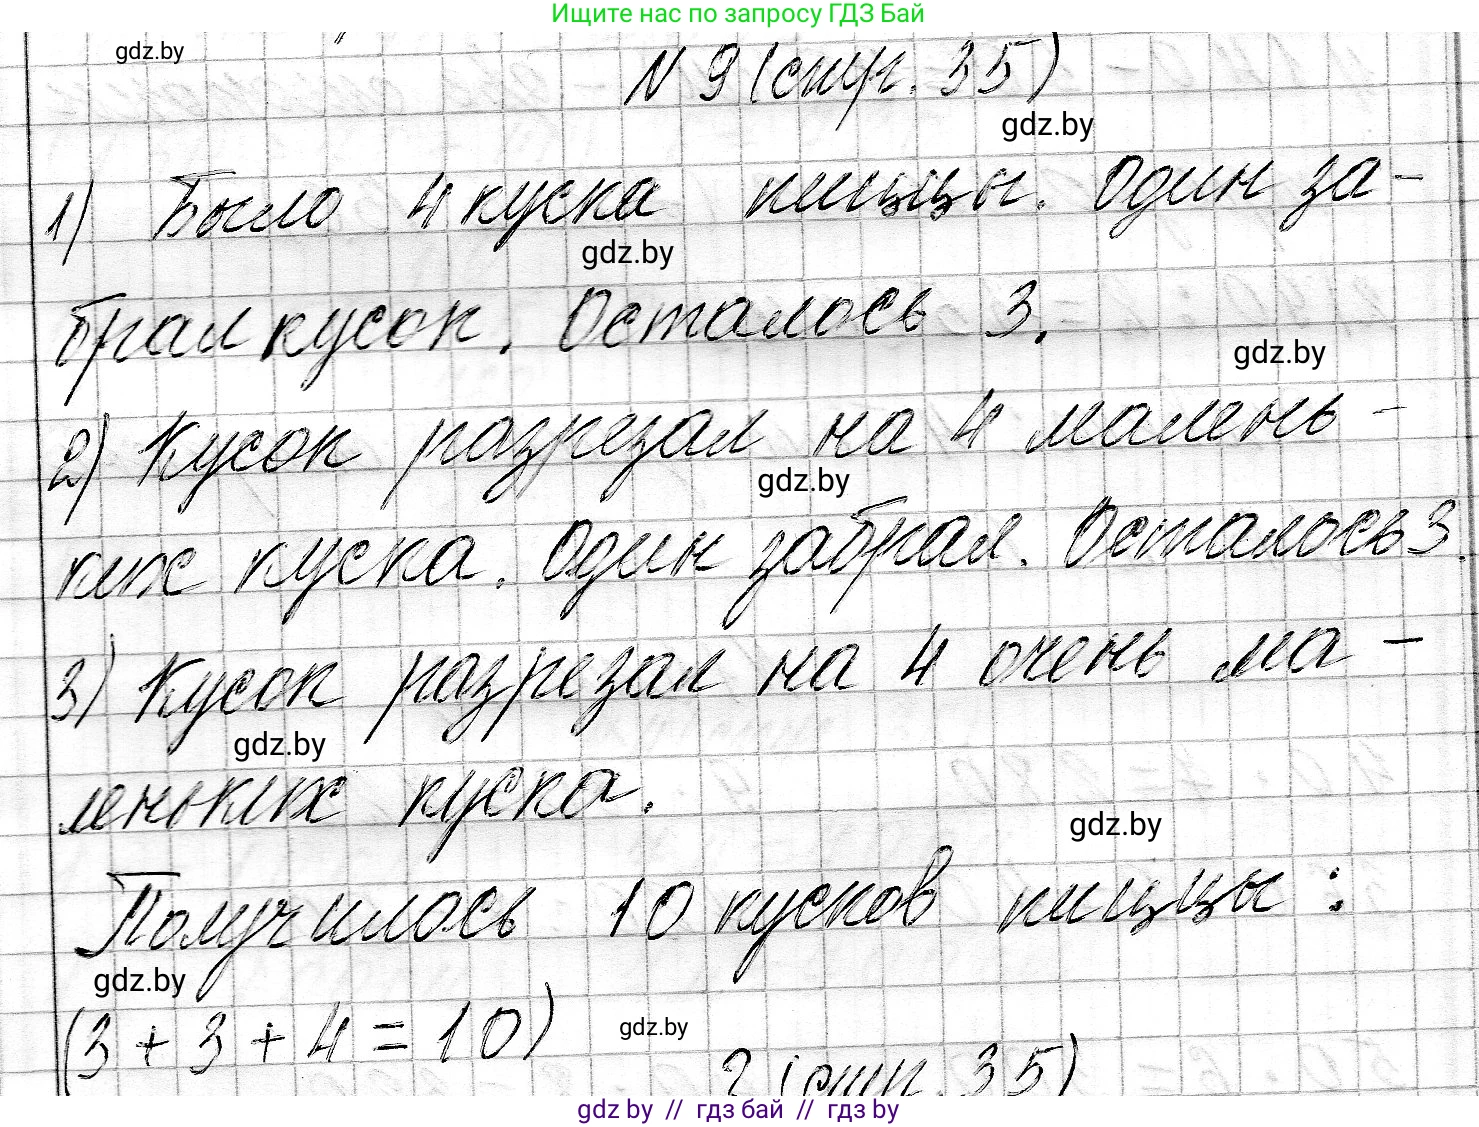 Ищите нас по запросу ГДЗ Бай
gdz.by
N 9 (стр. 35)
gdz.by
1) Было 4 куска пиццы. Один за-
gdz.by
брал кусок. Осталось 3.
gdz.by
2) Кусок разрезал на 4 малень-
gdz.by
ких куска. Один забрал. Осталось 3.
3) Кусок разрезал на 4 очень ма-
gdz.by
леньких куска.
gdz.by
Получилось 10 кусков пиццы:
gdz.by
(3 + 3 + 4 = 10)
gdz.by
? (стр. 35)
gdz.by // гдз бай // гдз by